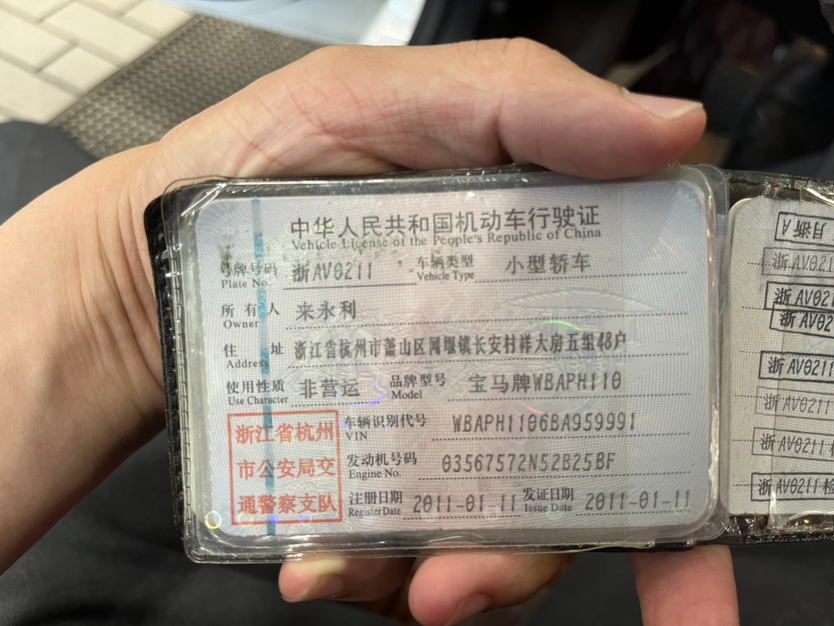 中华人民共和国机动车行驶证
Vehicle License of the People's Republic of China
号牌号码 浙AV0211 车辆类型 小型轿车
Plate No. Vehicle Type
所有人 来永利
Owner
住址 浙江省杭州市萧山区闻堰镇长安村祥大房五组48户
Address
使用性质 非营运 品牌型号 宝马牌WBAPH110
Use Character Model
浙江省杭州
市公安局交
通警察支队
车辆识别代号 WBAPH1106BA959991
VIN
发动机号码 03567572N52B25BF
Engine No.
注册日期 2011-01-11 发证日期 2011-01-11
Register Date Issue Date
月浙A
浙AV021
浙AV02
浙AV02
浙AV0211
浙AV0211
浙AV0211检
浙AV0211检